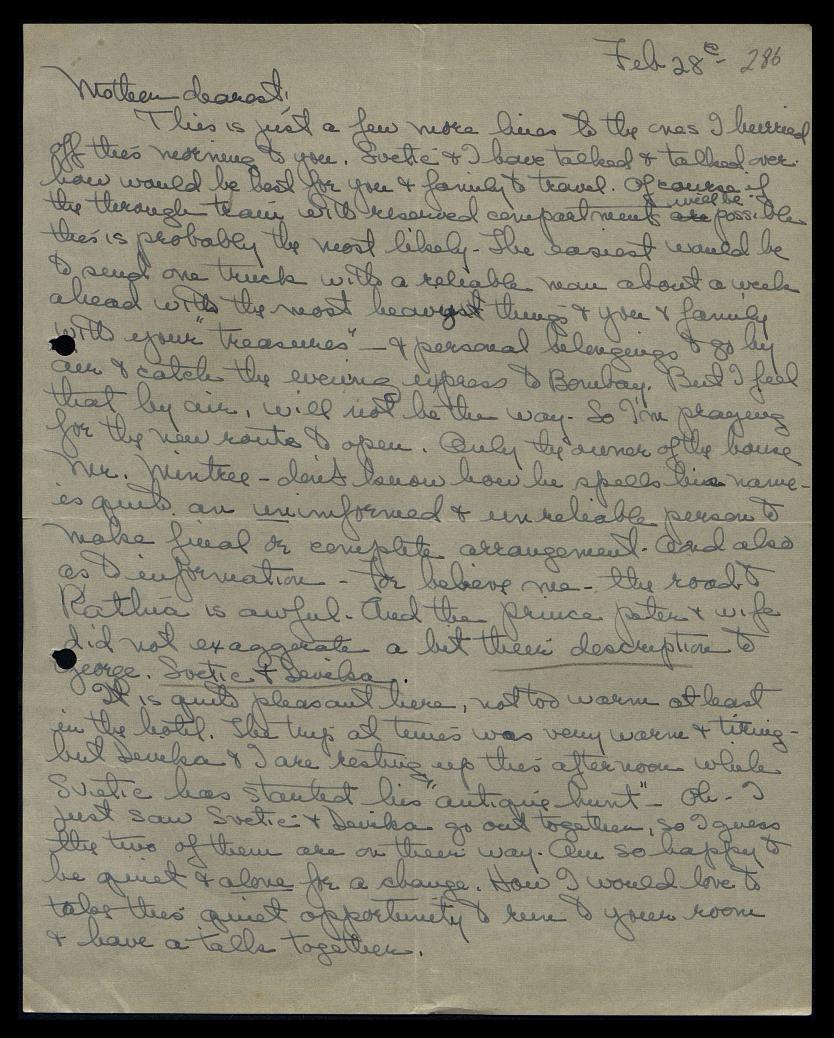 Feb 28e - 286
Mother dearest!
This is just a few more lines to the ones I hurried
off this morning to you. Svetic & I have talked & talked over
how would be best for you & family to travel. Of course if
will be
the through train with reserved compartments are possible
this is probably the most likely - The easiest would be
to send one truck with a reliable man about a week
ahead with the most heaviest things & you & family
with your "treasures" - & personal belongings to go by
air & catch the evening express to Bombay. But I feel
that by air, will not be the way. So I'm praying
for the new route to open. Only the owner of the house
Mr. Mintree - don't know how he spells his name -
is quite an uninformed & unreliable person to
make final or complete arrangement. And also
as to information - for believe me - the road to
is awful. And the prince peter & wife
did not exaggerate a bit their description to
George. Svetic & Devika.
It is quite pleasant here, not too warm at least
in the hotel. The trip at times was very warm & tiring -
but Devika & I are resting up this afternoon while
Svetic has started his "antique hunt" - Oh - I
just saw Svetic & Devika go out together, so I guess
the two of them are on their way. Am so happy to
be quiet & alone for a change. How I would love to
take this quiet opportunity to run to your room
& have a talk together.